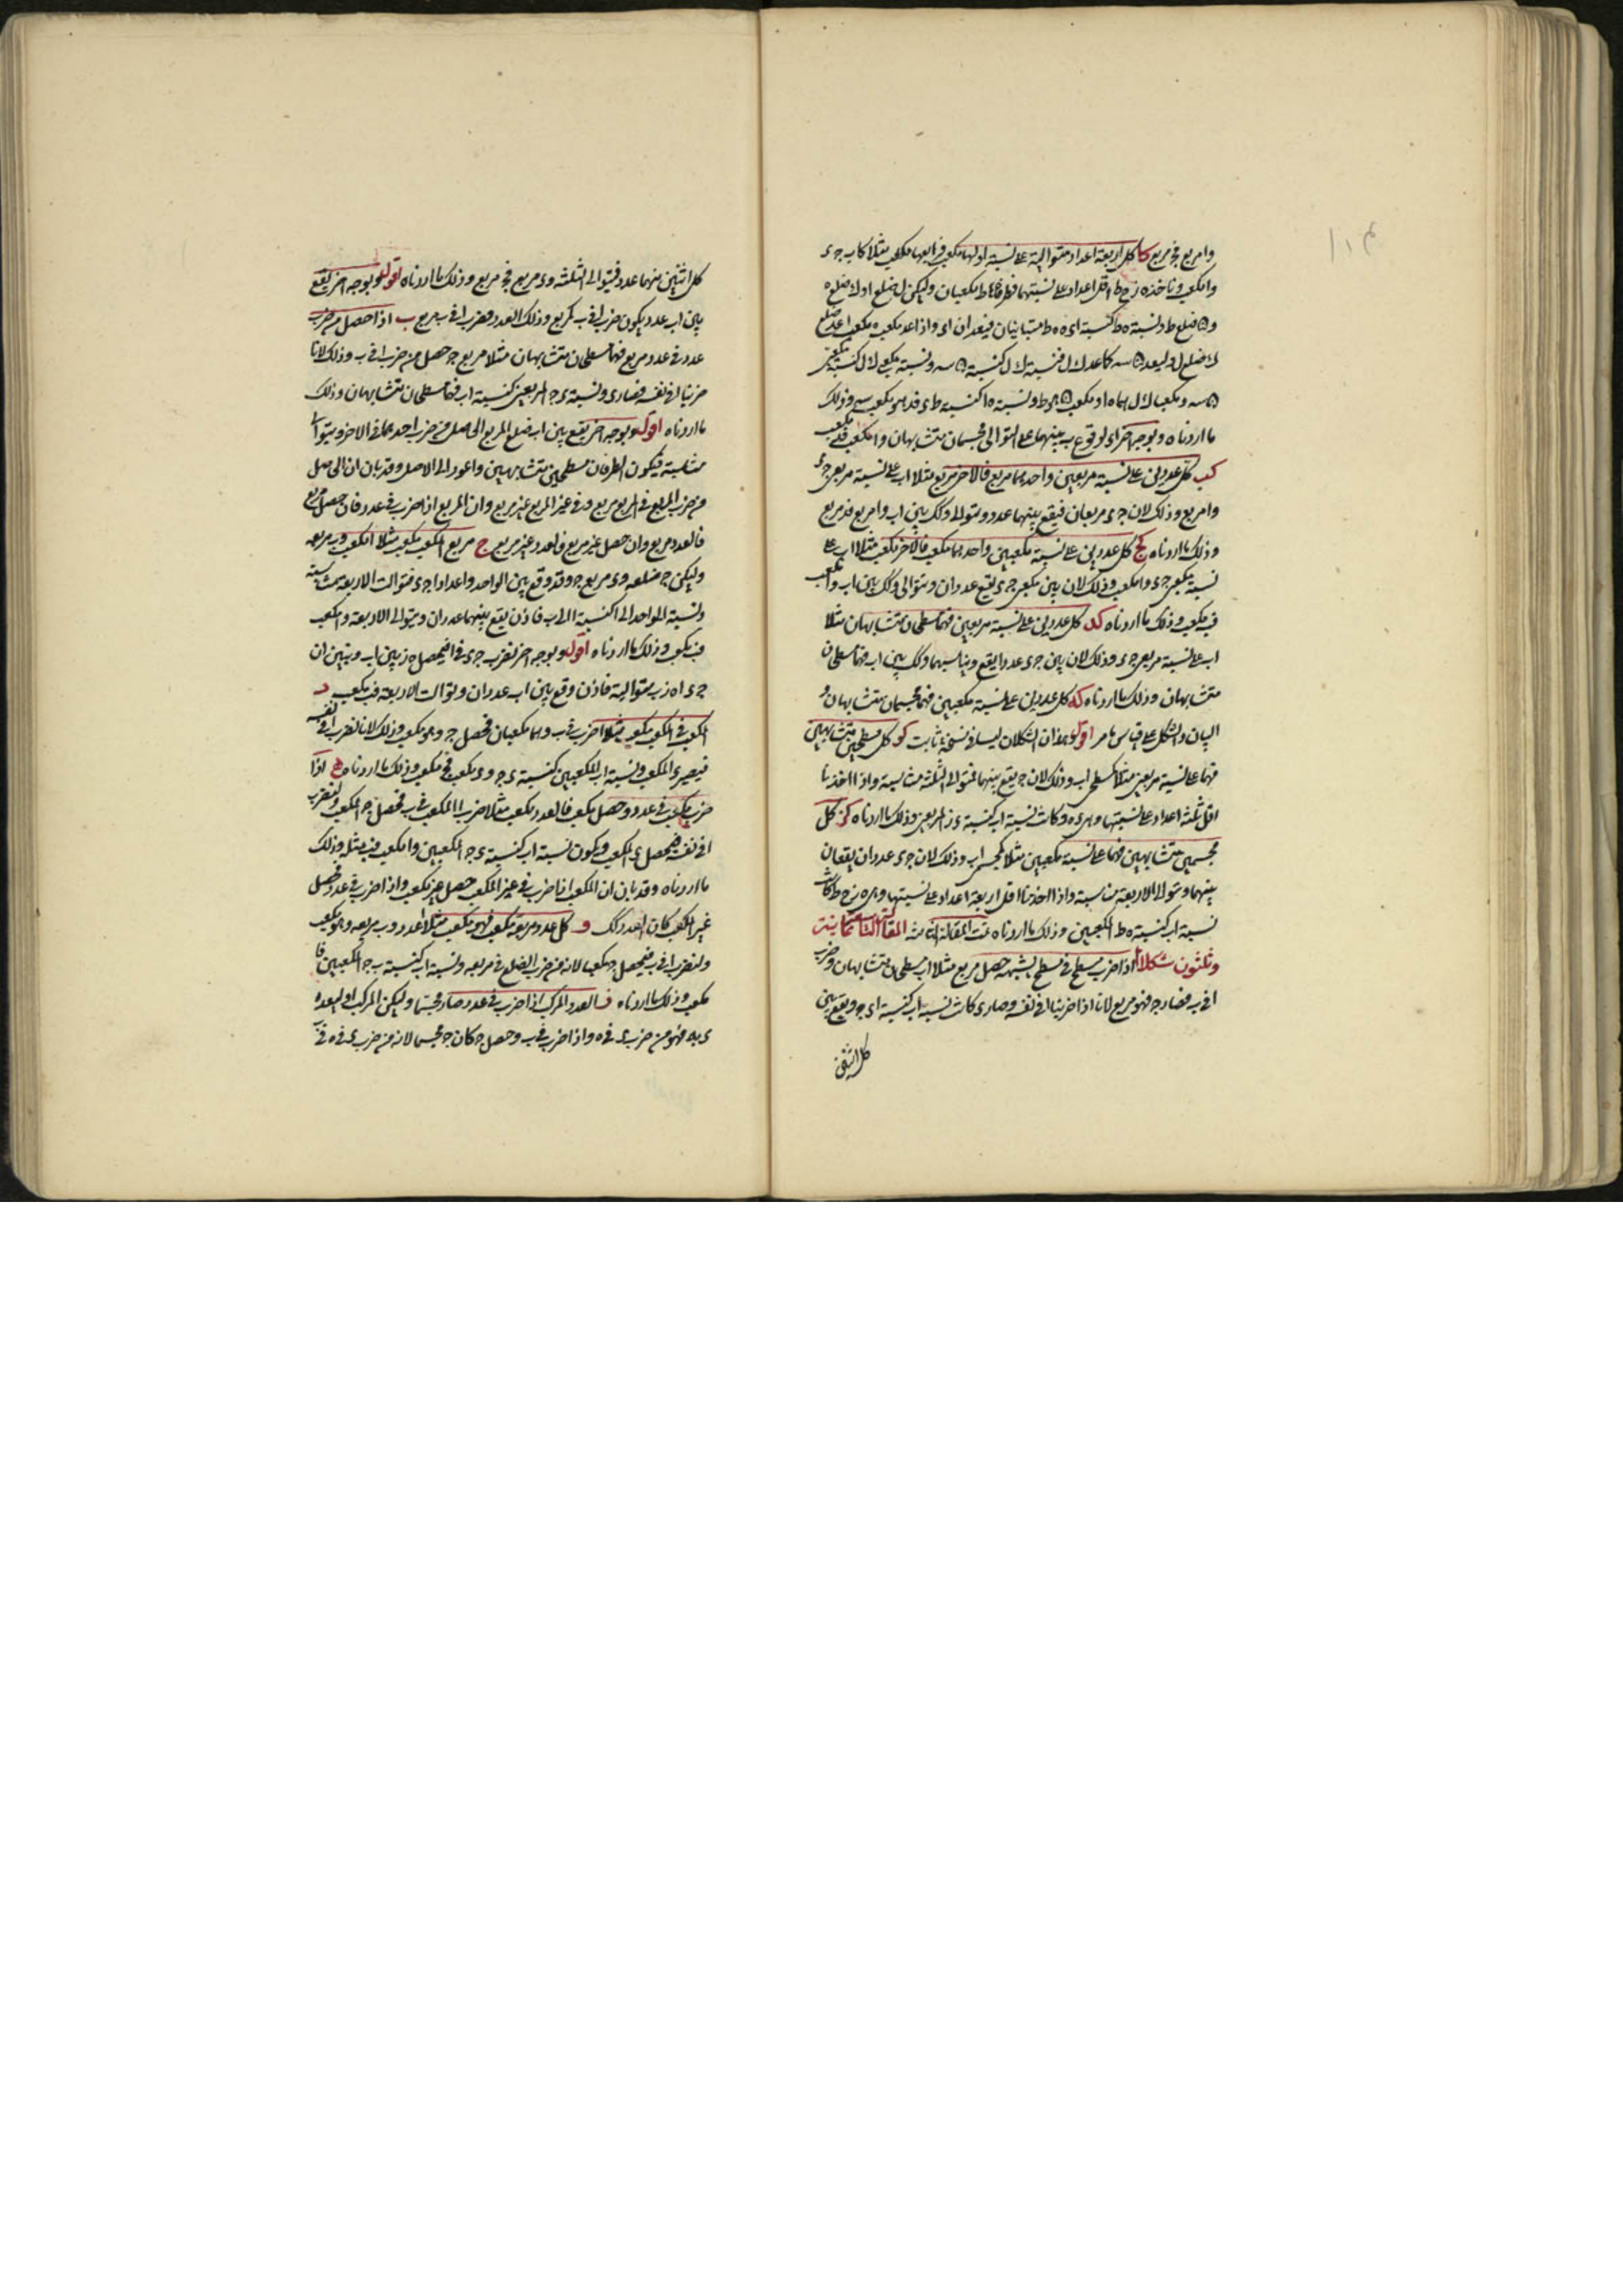 وا مربع فج مربع كا كل اربعة اعداد متوالية على نسبة اولها مكعب فرابعها مكعب مثلا كاب ج د
وا مكعب وناخذ ه ز ح ط اقل اعداد على نسبتها فطرفاها ه ط مكعبان وليكن ل ضلع ا و ك ضلع ه
ما اردناه وبوجه اخر اى لوقوع ب ج بينهما على التوالى مجسمان متشابهان وا مكعب فد مكعب
كب كل عددين على نسبة مربعين واحدهما مربع فالاخر مربع مثلا اب على نسبة مربعى ج د
وا مربع وذلك لان ج د مربعان فيقع بينهما عدد ويتوالى وكك بين اب وا مربع فب مربع
وذلك ما اردناه كج كل عددين على نسبة مكعبين واحدهما مكعب فالاخر مكعب مثلا اب على
نسبة مكعبى ج د وا مكعب وذلك لان بين مكعبى ج د يقع عددان ويتوالى وكك بين اب وا مكعب
فب مكعب وذلك ما اردناه كد كل عددين على نسبة مربعين فهما مسطحان متشابهان مثلا
اب على نسبة مربعى ج د وذلك لان بين ج د عددا يقع ويناسبهما وكك بين اب فهما مسطحان
متشابهان وذلك ما اردناه كه كل عددين على نسبة مكعبين فهما مجسمان متشابهان و
البيان والشكل على قياس ما مر اقول وهذان الشكلان ليسا فى نسخة ثابت كو كل مسطحين متشابهين
فهما على نسبة مربعين مثلا كمسطحى اب وذلك لان ج يقع بينهما فتوالى الثلثة متناسبة واذا اخذنا
اقل ثلثة اعداد على نسبتها وهى د ه ز وكانت نسبة اب كنسبة د ز المربعين وذلك ما اردناه كز كل
مجسمين متشابهين فهما على نسبة مكعبين مثلا كمجسمى اب وذلك لان ج د عددان يقعان
بينهما ويتوالى الاربعة متناسبة واذا اخذنا اقل اربعة اعداد على نسبتها وهى ه ز ح ط كانت
نسبة اب كنسبة ه ط المكعبين وذلك ما اردناه تمت المقالة الثامنة المقالة التاسعة ثمانية
وثلثون شكلا ا اذا ضرب مسطح فى مسطح يشبهه حصل مربع مثلا اب مسطحان متشابهان وضرب
ا فى ب فصار ج فهو مربع لانا اذا ضربنا ا فى نفسه وصار د كانت نسبة اب كنسبة د ج ويقع بين
كل اثنين
كل اثنين منهما عدد فيتوالى الثلثة ود مربع فج مربع وذلك ما اردناه اقول وبوجه اخر يقع
بين اب عدد يكون ضرب ا فى ب كمربع وذلك العدد فضرب ا فى ب مربع ب اذا حصل من ضرب
عدد فى عدد مربع فهما مسطحان متشابهان مثلا مربع ج حصل من ضرب ا فى ب وذلك لانا
ضربنا ا فى نفسه فصار د ونسبة د ج المربعين كنسبة اب فهما مسطحان متشابهان وذلك
ما اردناه اقول وبوجه اخر يقع بين اب ضلع المربع الحاصل من ضرب احدهما فى الاخر ويتوالى
متناسبة فيكون الطرفان مسطحين متشابهين واعود الى الاصل وقد بان ان الحاصل
من ضرب المربع فى المربع مربع وفى غير المربع غير مربع وان المربع اذا ضرب فى عدد فان حصل مربع
فالعدد مربع وان حصل غير مربع فالعدد غير مربع ج مربع المكعب مكعب مثلا ا مكعب وب مربعه
وليكن ج ضلعه ود مربع ج وقد وقع بين الواحد وا عددا ج د فتوالت الاربعة متناسبة
ونسبة الواحد الى ا كنسبة ا الى ب فاذن يقع بينهما عددان ويتوالى الاربعة وا مكعب
فب مكعب وذلك ما اردناه اقول وبوجه اخر نضرب ج د فى ا فيحصل ه ز بين اب وتبين ان
ج د ا ه ز ب متوالية فاذن وقع بين اب عددان وتوالت الاربعة فب مكعب د
المكعب فى المكعب مكعب مثلا ا ضرب فى ب وهما مكعبان فحصل ج وهو مكعب وذلك لانا نضرب ا فى نفسه
فيصير د المكعب ونسبة اب المكعبين كنسبة د ج ود مكعب فج مكعب وذلك ما اردناه ه اذا
ضرب مكعب فى عدد وحصل مكعب فالعدد مكعب مثلا ضرب ا المكعب فى ب فحصل ج المكعب ولنضرب
ا فى نفسه فيحصل د المكعب ويكون نسبة اب كنسبة د ج المكعبين وا مكعب فب مثله وذلك
ما اردناه وقد بان ان المكعب اذا ضرب فى غير المكعب حصل غير مكعب واذا ضرب فى عدد فحصل
غير المكعب كان العدد كك و كل عدد مربعه مكعب فهو مكعب مثلا ا عدد وب مربعه وهو مكعب
ولنضرب ا فى ب فيحصل ج مكعبا لانه من ضرب الضلع فى مربعه ونسبة اب كنسبة ب ج المكعبين فا
مكعب وذلك ما اردناه ز العدد المركب اذا ضرب فى عدد صار مجسما وليكن المركب ا وليعده
د ب ه فهو من ضرب د فى ه واذا ضرب فى ب وحصل ج كان ج مجسما لانه من ضرب د فى ه فى ب